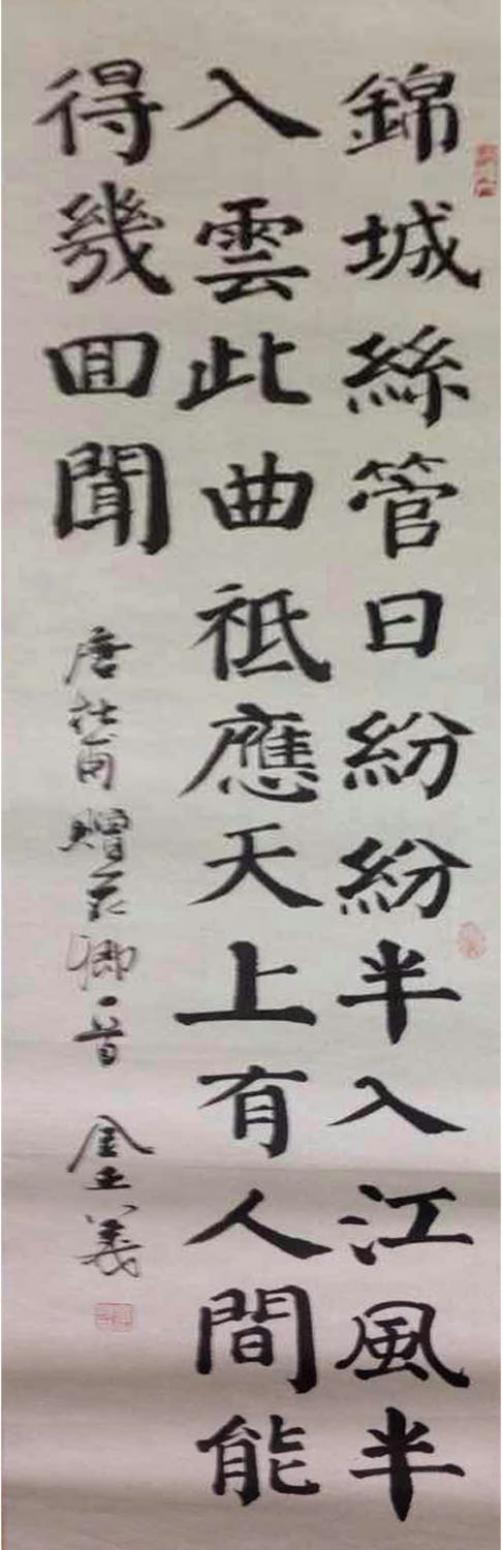 錦城絲管日紛紛半入江風半
入雲此曲祗應天上有人間能
得幾回聞
唐杜甫贈花卿一首